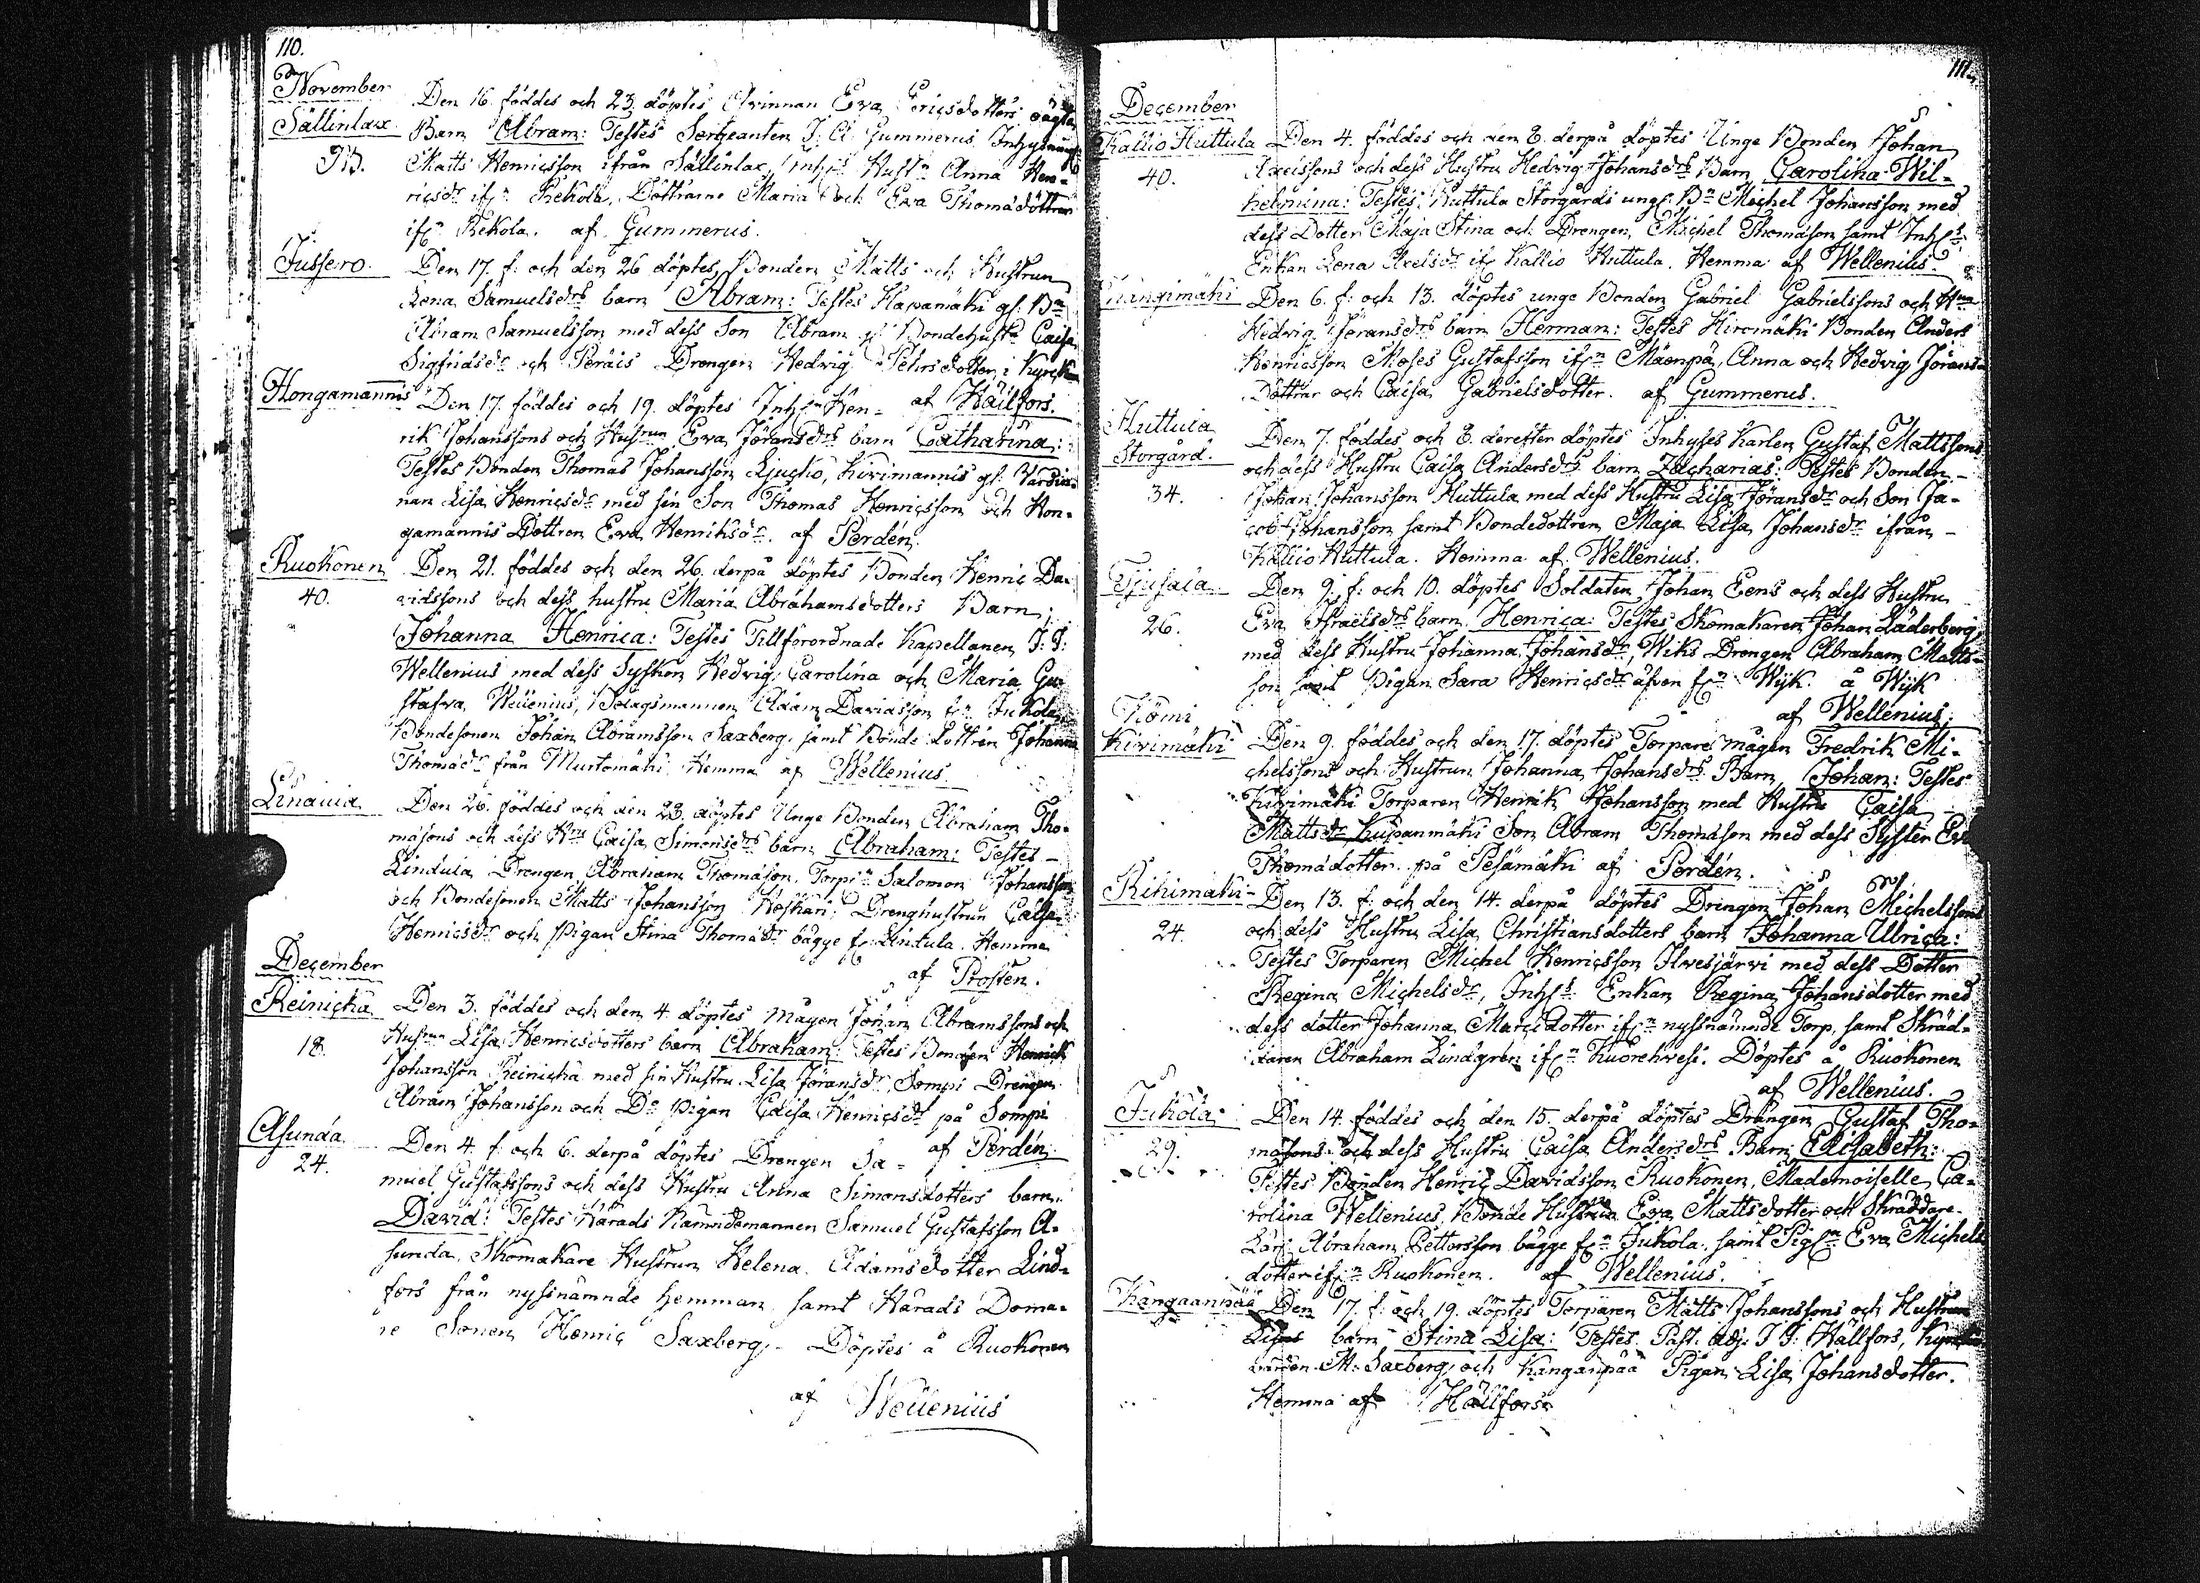 110.
November
Sällinlax
Den 16. föddes och 23. döptes Qvinnan Eva Ericsdotters oägta
Barn Abram: Testes Sergeanten J: A: Gummerus, Inhyses
Matts Henricsson ifrån Sällinlax, Inh:s Hust:n Anna Hen-
ricsd:r if:n Rekola, Döttrarne Maria och Eva Thomæ döttrar
if:n Rekola. af Gummerus.
Jussero.
Den 17. f: och den 26 döptes Bonden Matts och Hustrun
Lena Samuelsd:rs barn Abram: Testes Hapamäki gl: B:n
Abram Samuelsson med dess Son Abram gl Bondehust:n Caisa
Sigfridsd:r och Peräis Drengen Hedvig Petersdotter, i Kyrck
af Hällfors.
Hongamannis
Den 17. föddes och 19. döptes Inh:s Hen-
rik Johanssons och Hustrun Eva Jöransd:rs barn Catharina:
Testes Bonden Thomas Johansson Ljuckio, Kivimannis gl: Värdin-
nan Lisa Henricsd:r med sin Son Thomas Henricsson och Hon-
gamannis Dottren Eva Henriksd:r. af Perdén.
Ruokonen
40.
Den 21. föddes och den 26. derpå döptes Bonden Henric Da-
vidssons och dess hustru Maria Abrahamsdotters Barn;
Johanna Henrica: Testes Tillförordnade Kapellanen J: J:
Wellenius med dess Syskon Hedvig Carolina och Maria Gu-
stafva Wellenius, Bolagsmannen Adam Davidsson f:n Jukola,
Bondesonen Johan Abramsson Saxberg, samt Bonde dottren Johanna
Thomæd:r från Murtomäki. Hemma af Wellenius.
Linaula
Den 26. föddes och den 28. döptes Unge Bonden Abraham Tho-
mæsons och dess H:us Caisa Simonsd:rs barn Abraham: Testes -
Lindula Drengen Abraham Thomæson, Torp:n Salomon Johansson
och Bondesonen Matts Johansson Koskari, Drenghustrun Caisa
Henricsd:r och Pigan Stina Thomæd:r bägge f: Lindula. Hemma
af Prosten.
December
Reinickä
18.
Den 3. föddes och den 4. döptes Mågen Johan Abramssons och
Hustrun Lisa Henricsdotters barn Abraham: Testes Bonden Henrick
Johansson Reinickä med sin Hustru Lisa Jöransd:r, Sompi Drengen
Abram Johansson och D:o Pigan Caisa Henricsd:r på Sompi
af Perdén.
Asunda
24.
Den 4. f: och 6. derpå döptes Drengen Sa-
muel Gustafssons och dess Hustru Anna Simonsdotters barn
David: Testes Härads Nämndemannen Samuel Gustafsson A-
sunda, Skomakare Hustrun Helena Adamsdotter Lind-
fors från nyssnämnde hemman, samt Härads Doma-
re Sonen Henric Saxberg. Döptes å Ruokonen
af Wellenius
111.
December
Kallio Huttula
40.
Den 4. föddes och den 8. derpå döptes Unge Bonden Johan
Axelssons och dess Hustru Hedvig Johansd:rs Barn Carolina Wil-
helmina: Testes: Huttula Storgårds unge B:n Michel Johansson med
dess Dotter Maja Stina och Drengen Michel Thomæson samt Inh:s
Enkan Lena Axelsd:r if: Kallio Huttula. Hemma af Wellenius.
Kangimäki
Den 6. f: och 13. döptes unge Bonden Gabriel Gabrielssons och H:un
Hedvig Jöransd:rs barn Herman: Testes Hiromäki Bonden Anders
Henricsson Moses Gustafsson if:n Mäenpä, Anna och Hedvig Jörans-
Döttrar och Caisa Gabrielsdotter. af Gummerus.
Huttula
Storgård.
34.
Den 7. föddes och 8. derefter döptes Inhyses Karlen Gustaf Mattssons
och dess Hustru Caisa Andersd:rs barn Zacharias: Testes Bonden -
Johan Johansson Huttula med dess Hustru Lisa Jöransd:r och Son Ja-
cob Johansson samt Bondedottren Maja Lisa Johansd:r ifrån -
Kallio Huttula. Hemma af Wellenius.
26.
Den 9. f: och 10. döptes Soldaten Johan Eens och dess Hustru
Eva Israelsd:rs barn Henrica: Testes Skomakaren Johan Läderberg
med dess Hustru Johanna Johansd:r, Wiks Drengen Abraham Matts-
son samt Pigan Sara Henricsd:r äfven f:n Wijk. å Wijk
af Wellenius.
Kömi
Kivimäki
Den 9. föddes och den 17. döptes Torpare mågen Fredrik Mi-
chelssons och Hustrun Johanna Johansd:rs Barn Johan: Testes
Kivimäki Torparen Henrik Johansson med Hustru Caisa
Mattsd:r Huhanmäki Son Abram Thomæson med dess Syster Eva
Thomædotter på Pesämäki af Perdén.
Rihimäki
24.
Den 13. f: och den 14. derpå döptes Drängen Johan Michelssons
och dess Hustru Lisa Christiansdotters barn Johanna Ulrica:
Testes Torparen Michel Henricsson Ilvesjärvi med dess Dotter
Regina Michelsd:r, Inh:s Enkan Regina Johansdotter med
dess dotter Johanna Marcidotter if:n nyssnämnde Torp, samt Skräd-
daren Abraham Lindgrén if:n Kuorehvesi. Döptes å Ruokonen
af Wellenius.
Jukola
29.
Den 14. föddes och den 15. derpå döptes Drängen Gustaf Tho-
mæsons och dess Hustru Caisa Andersd:rs Barn Elisabeth:
Testes Bonden Henric Davidsson Ruokonen, Mademoiselle Ca-
rolina Wellenius, Bonde Hustrun Eva Mattsdotter och Skräddare
Lärj: Abraham Pettersson bägge f:n Jukola, samt Pig:n Eva Michels
dotter if:n Ruokonen. af Wellenius.
Kangaanpää
Den 17. f: och 19. döptes Torparen Matts Johanssons och Hustrun
Lisas barn Stina Lisa: Testes Past. adj: J J: Hällfors,
M: Saxberg, och Kanganpää Pigan Lisa Johansdotter.
Hemma af Hällfors